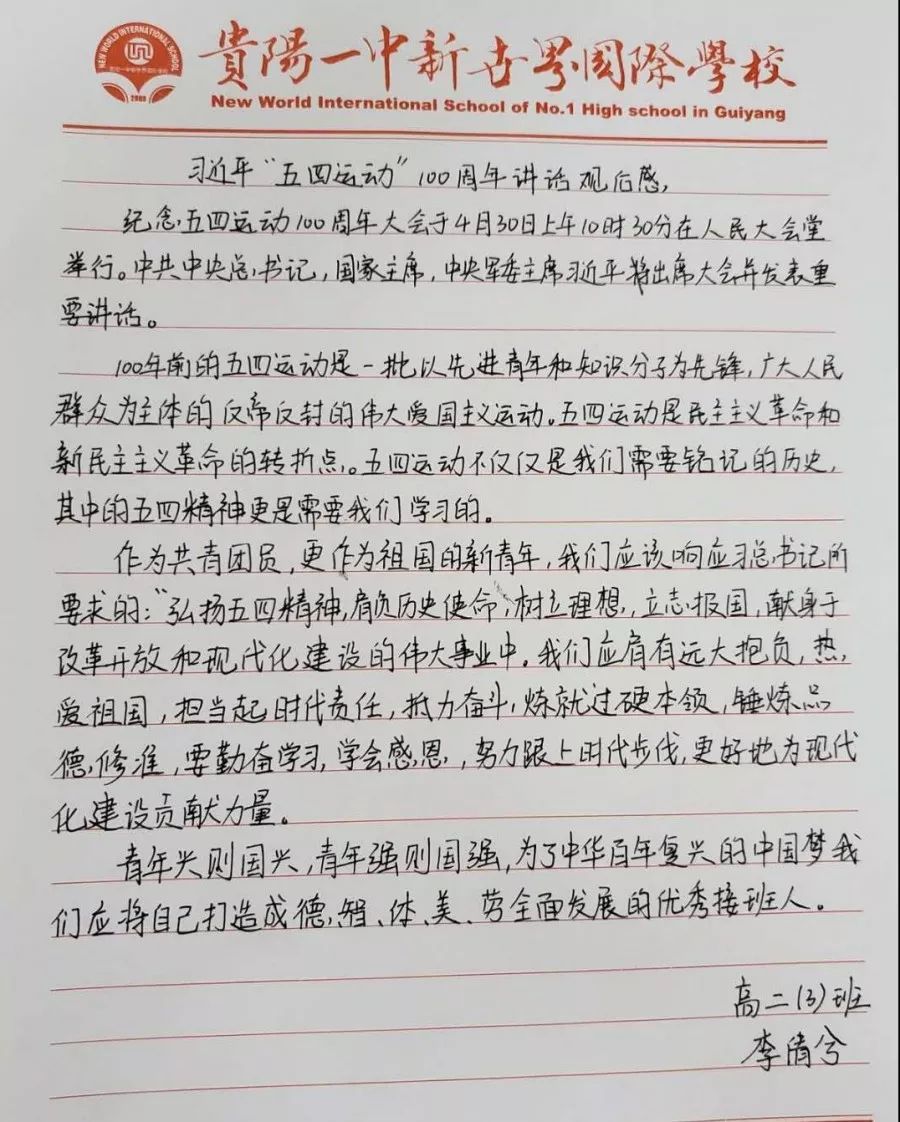 NEW WORLD INTERNATIONAL SCHOOL
2003
貴陽一中新世界國際學校
New World International School of No.1 High school in Guiyang
习近平“五四运动”100周年讲话观后感,
纪念五四运动100周年大会于4月30日上午10时30分在人民大会堂
举行。中共中央总书记,国家主席,中央军委主席习近平将出席大会并发表重
要讲话。
100年前的五四运动是一批以先进青年和知识分子为先锋,广大人民
群众为主体的反帝反封的伟大爱国主义运动。五四运动是民主主义革命和
新民主主义革命的转折点。五四运动不仅仅是我们需要铭记的历史,
其中的五四精神更是需要我们学习的。
作为共青团员,更作为祖国的新青年,我们应该响应习总书记所
要求的:“弘扬五四精神,肩负历史使命,树立理想,立志报国,献身于
改革开放和现代化建设的伟大事业中。我们应肩有远大抱负,热
爱祖国,担当起时代责任,抵力奋斗,炼就过硬本领,锤炼品
德修准,要勤奋学习,学会感恩,努力跟上时代步伐,更好地为现代
化建设贡献力量。
青年兴则国兴,青年强则国强,为了中华百年复兴的中国梦我
们应将自己打造成德、智、体、美、劳全面发展的优秀接班人。
高二(3)班
李倩兮